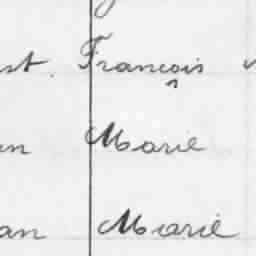 st. François
n Marie
an Marie